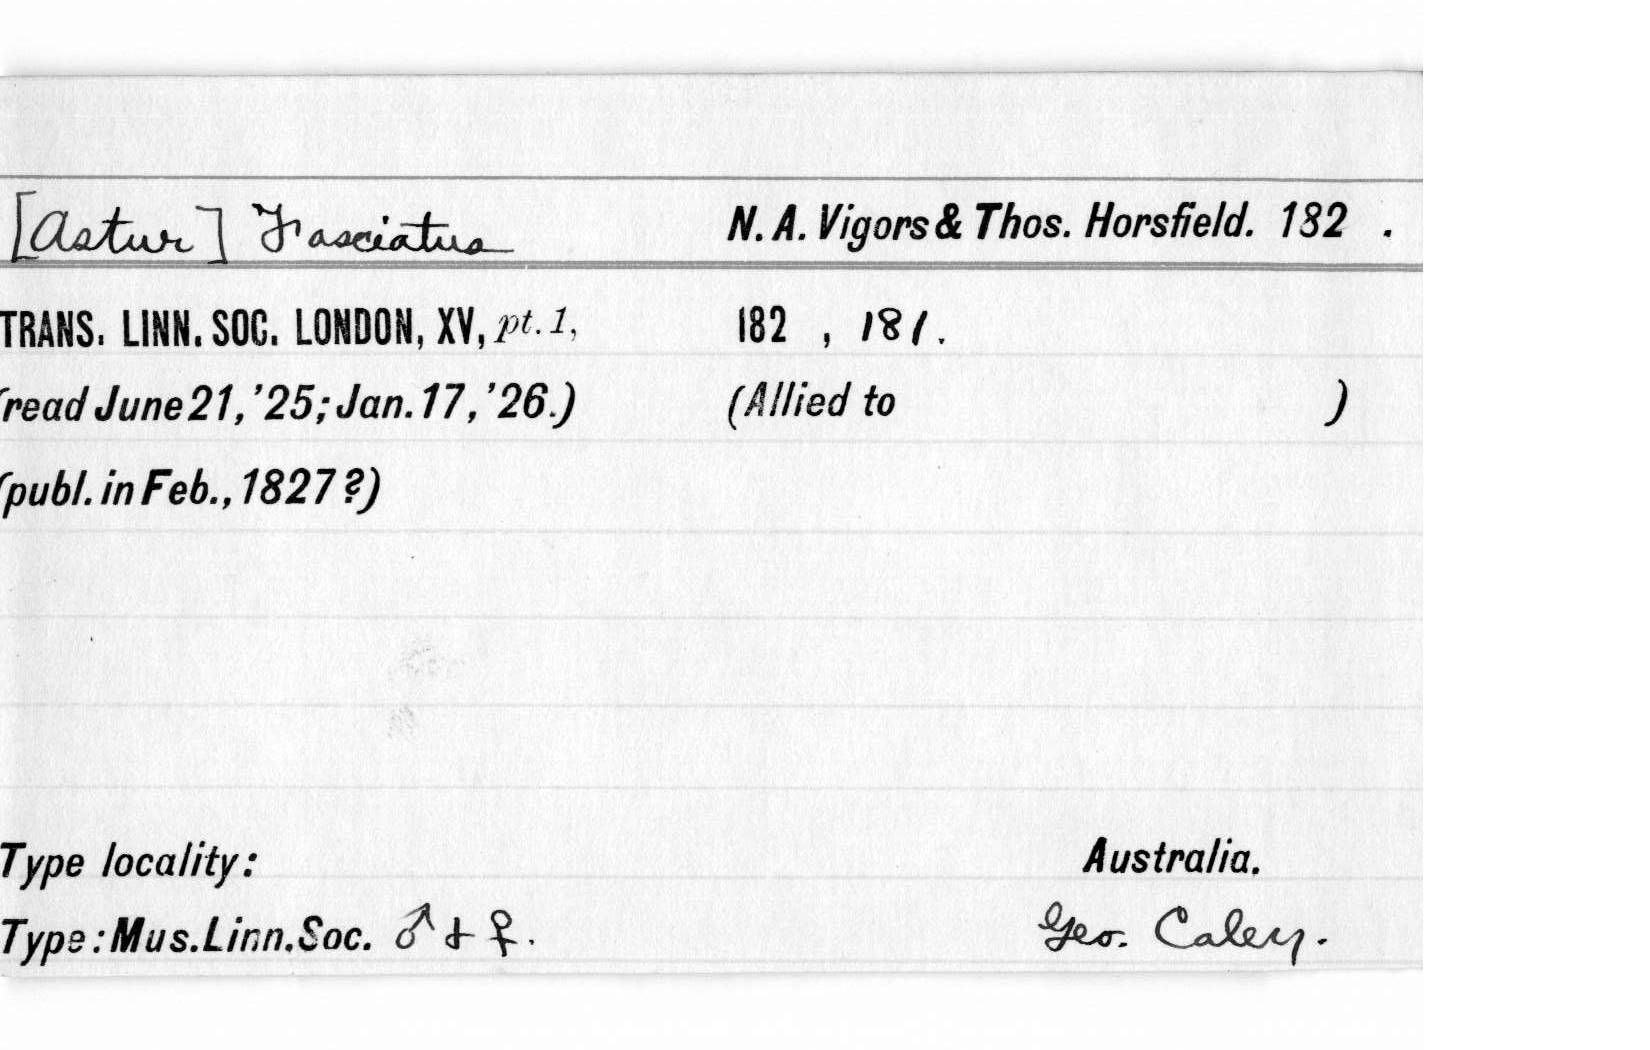 [Astur] Fasciatus N. A. Vigors & Thos. Horsfield. 182 .
TRANS. LINN. SOC. LONDON, XV, pt. 1, 182 , 181.
(read June 21, '25; Jan. 17, '26.) (Allied to )
(publ. in Feb., 1827?)
Type locality: Australia.
Type: Mus. Linn. Soc. ♂ & ♀. Geo. Caley.